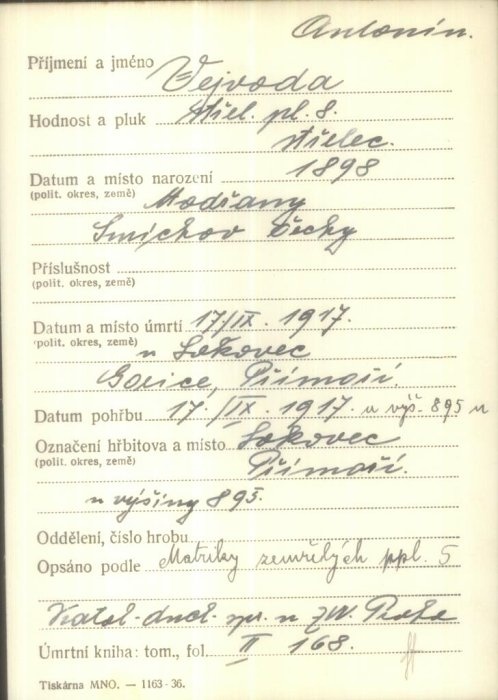 Antonín.
Příjmení a jméno Vejvoda
Hodnost a pluk střel. pl. 8.
střelec.
Datum a místo narození 1898
(polit. okres, země) Modřany
Smíchov Čechy
Příslušnost
(polit. okres, země)
Datum a místo úmrtí 17/IX. 1917.
(polit. okres, země) u Sokovec
Gorice, Přímoří.
Datum pohřbu 17./IX. 1917. u výš. 895 u
Označení hřbitova a místo Sokovec
(polit. okres, země) Přímoří.
u výšiny 895.
Oddělení, číslo hrobu
Opsáno podle Matriky zemřelých ppl. 5
Katol. duch. spr. u ZVV. Praha
Úmrtní kniha: tom., fol. II 168.
Tiskárna MNO. — 1163-36.